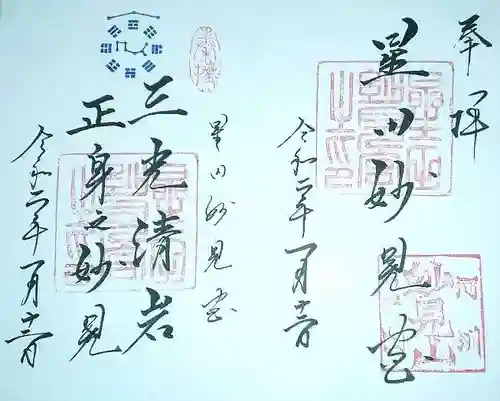 奉拝
星田妙見宮
令和二年一月十二日
奉拝
星田妙見宮
三光清岩
正身之妙見
令和二年一月十二日